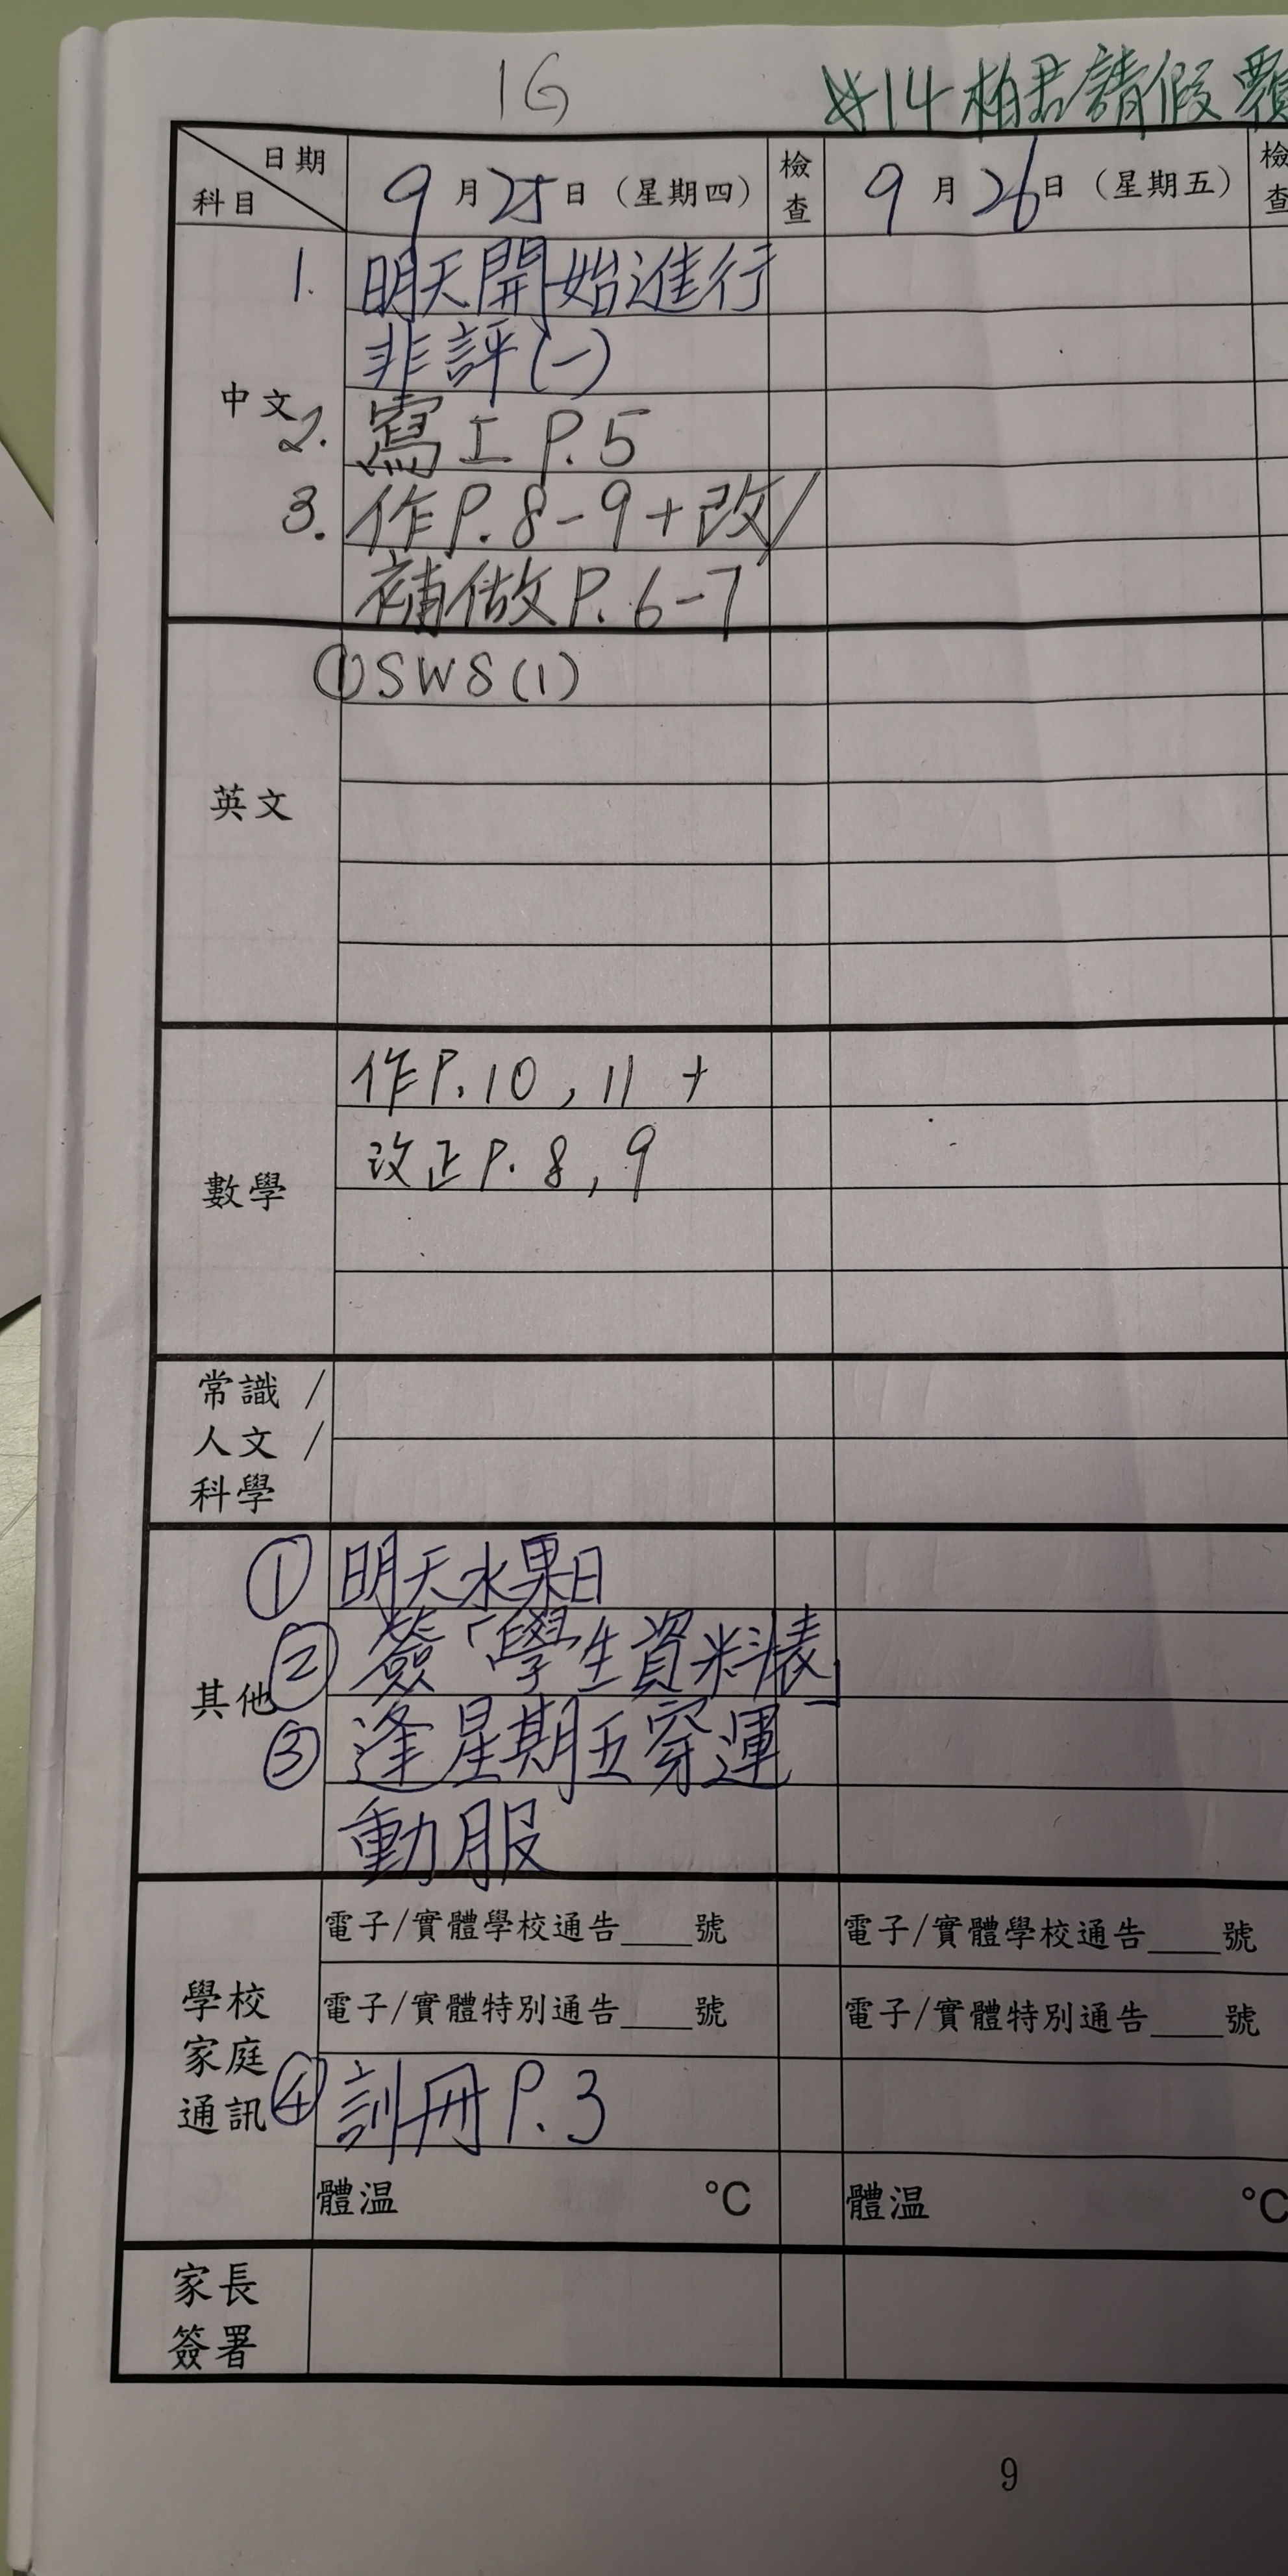 1G
#14 柏君請假
日期
科目
9月25日（星期四）
檢查
9月26日（星期五）
檢查
中文
1. 明天開始進行
非評(一)
2. 寫工P.5
3. 作P.8-9+改/
補做P.6-7
英文
①SW8(1)
數學
作P.10，11 +
改正P.8，9
常識/
人文/
科學
其他
①明天水果日
②簽「學生資料表」
③逢星期五穿運
動服
學校
家庭
通訊
電子/實體學校通告____號
電子/實體學校通告____號
電子/實體特別通告____號
電子/實體特別通告____號
④訓冊P.3
體温 °C
體温 °C
家長
簽署
9